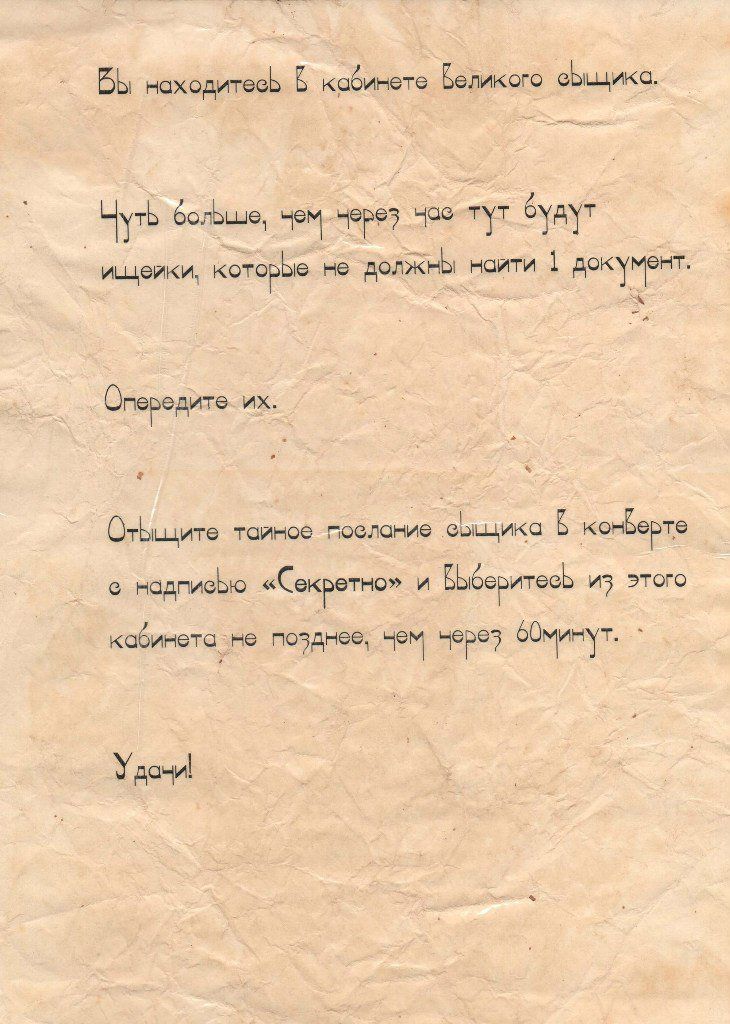 Вы находитесь в кабинете великого сыщика.
Чуть больше, чем через час тут будут
ищейки, которые не должны найти 1 документ.
Опередите их.
Отыщите тайное послание сыщика в конверте
с надписью «Секретно» и выберитесь из этого
кабинета не позднее, чем через 60минут.
Удачи!